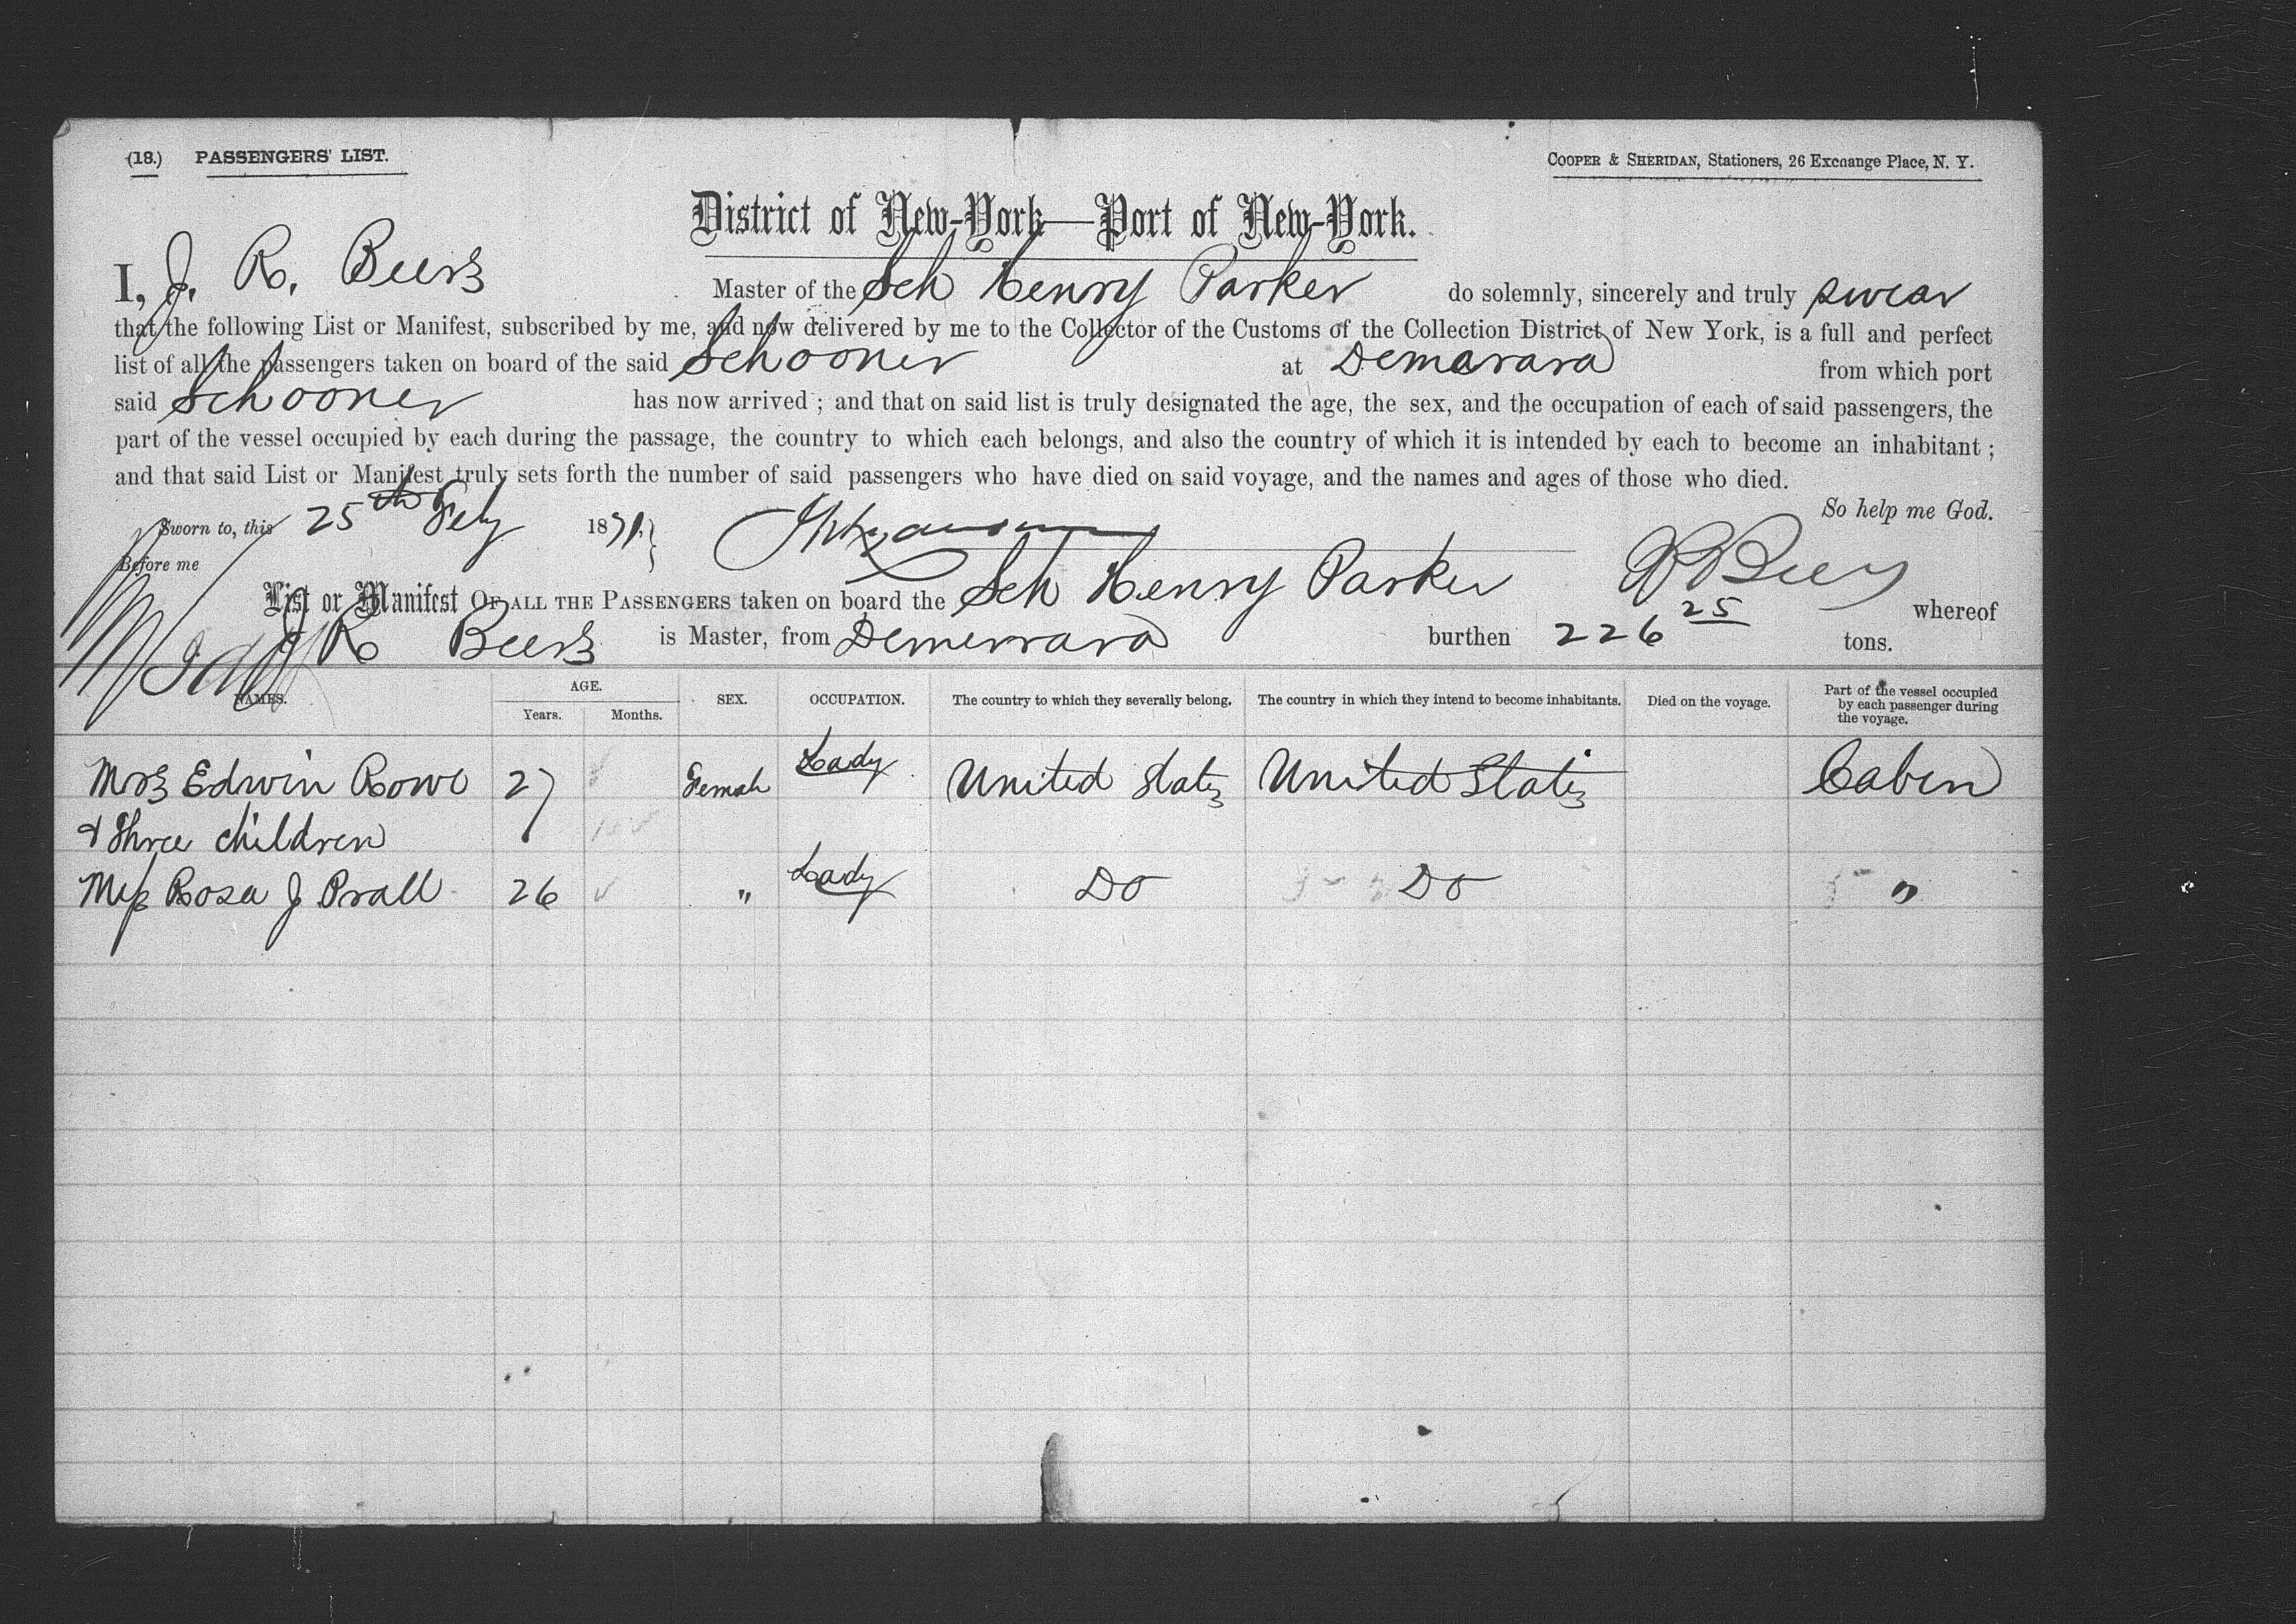 (18.) PASSENGERS' LIST.
COOPER & SHERIDAN, Stationers, 26 Exchange Place, N. Y.
District of New-York—Port of New-York.
I, J. R. Beers Master of the Sch Henry Parker do solemnly, sincerely and truly swear
that the following List or Manifest, subscribed by me, and now delivered by me to the Collector of the Customs of the Collection District of New York, is a full and perfect
list of all the passengers taken on board of the said Schooner at Demarara from which port
said Schooner has now arrived ; and that on said list is truly designated the age, the sex, and the occupation of each of said passengers, the
part of the vessel occupied by each during the passage, the country to which each belongs, and also the country of which it is intended by each to become an inhabitant ;
and that said List or Manifest truly sets forth the number of said passengers who have died on said voyage, and the names and ages of those who died.
So help me God.
Sworn to, this 25th Feby 1871.
Before me
List or Manifest OF ALL THE PASSENGERS taken on board the Sch Henry Parker whereof
J R Beers is Master, from Demerrara burthen 226 25 tons.
NAMES. AGE. Years. Months. SEX. OCCUPATION. The country to which they severally belong. The country in which they intend to become inhabitants. Died on the voyage. Part of the vessel occupied by each passenger during the voyage.
Mrs Edwin Rowe 27 Female Lady United States United States Cabin
& Three children
Miss Rosa J Prall 26 " Lady Do Do "